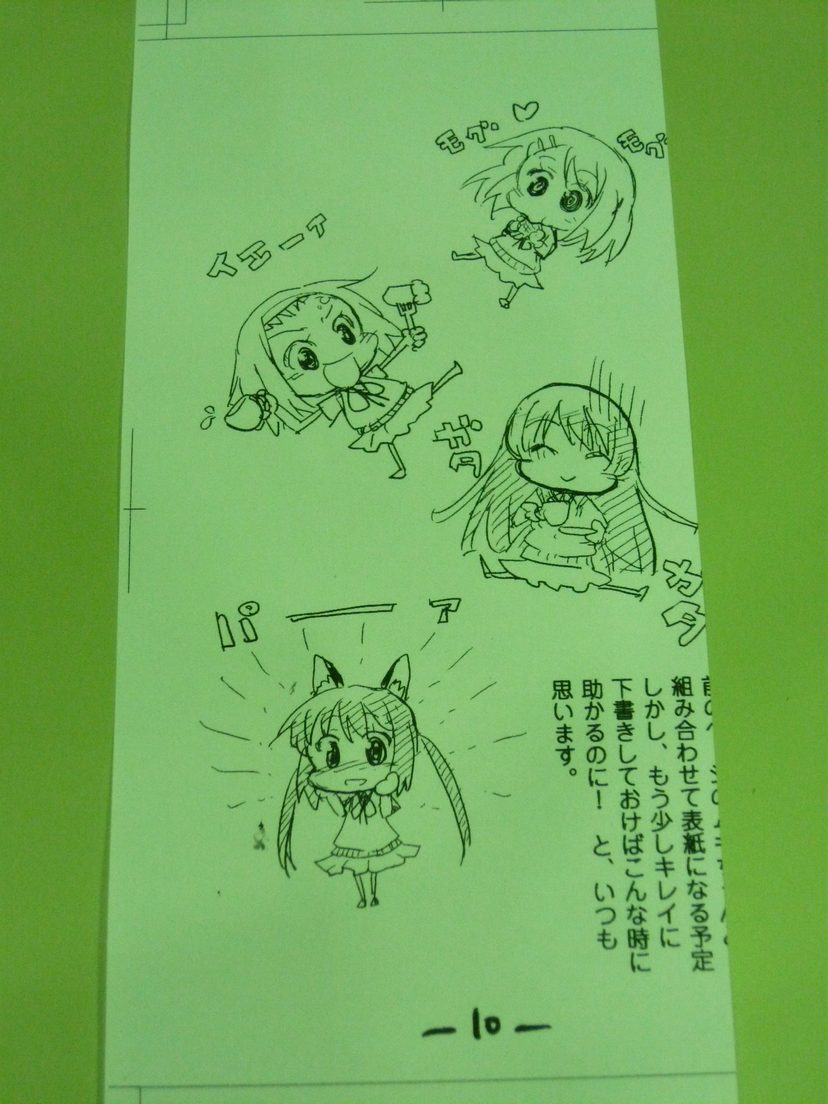 モグ・♡
モグ
イエーイ
ガタ
カタ
パーァ
組み合わせて表紙になる予定
しかし、もう少しキレイに
下書きしておけばこんな時に
助かるのに！　と、いつも
思います。
— 10 —